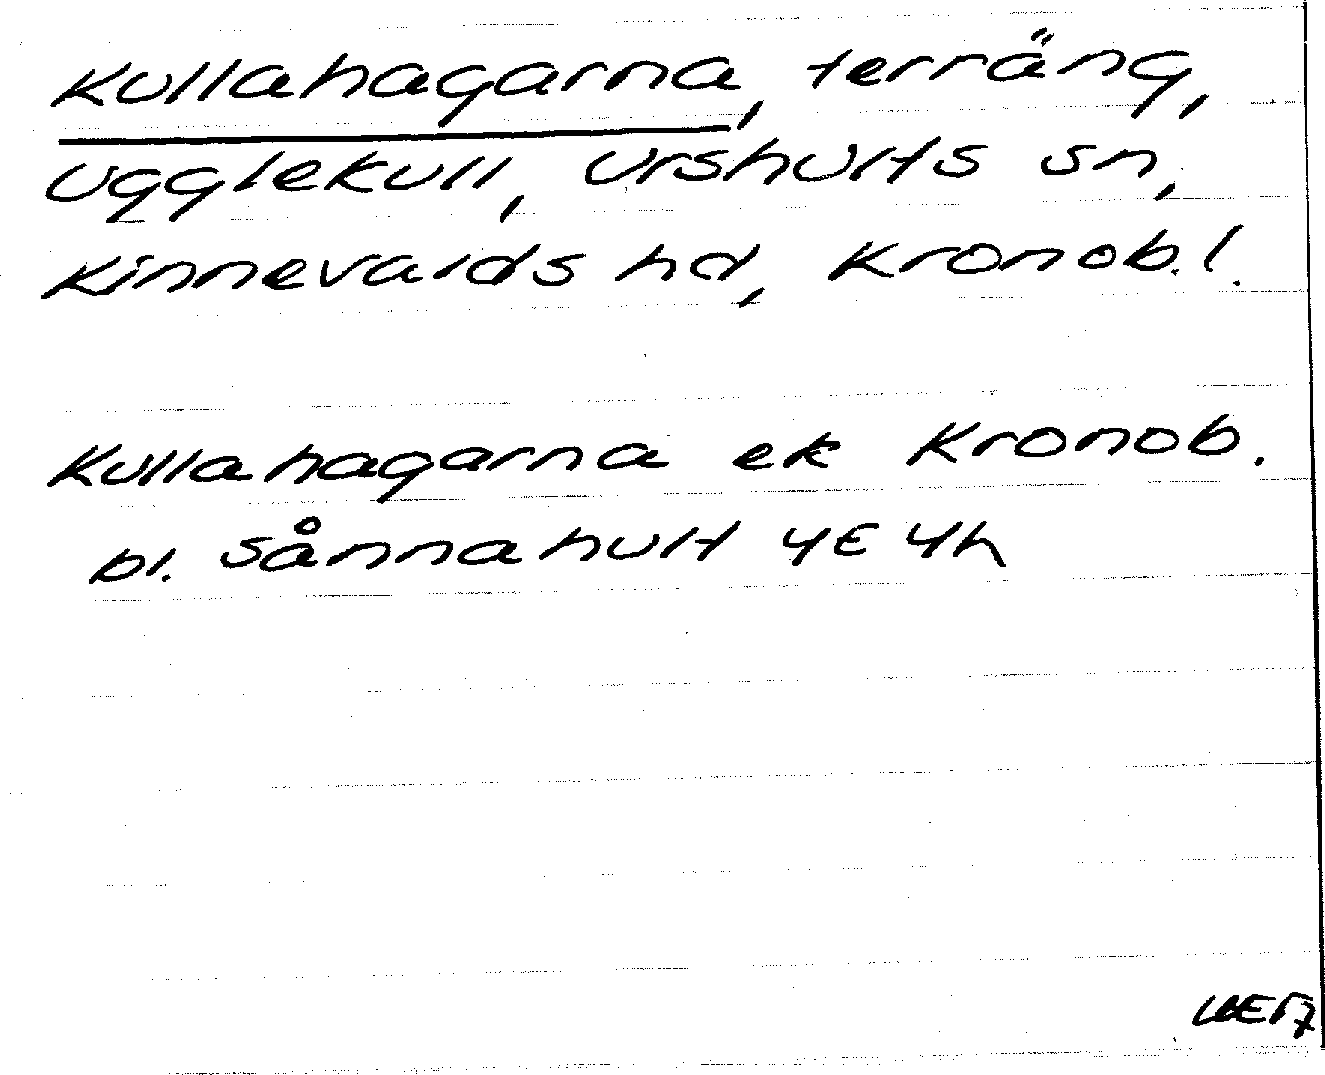 Kullahagarna, terräng,
Ugglekull, Urshults sn,
Kinnevalds hd, Kronob. l.
Kullahagarna ek Kronob.
bl. Sånnahult 4E 4h